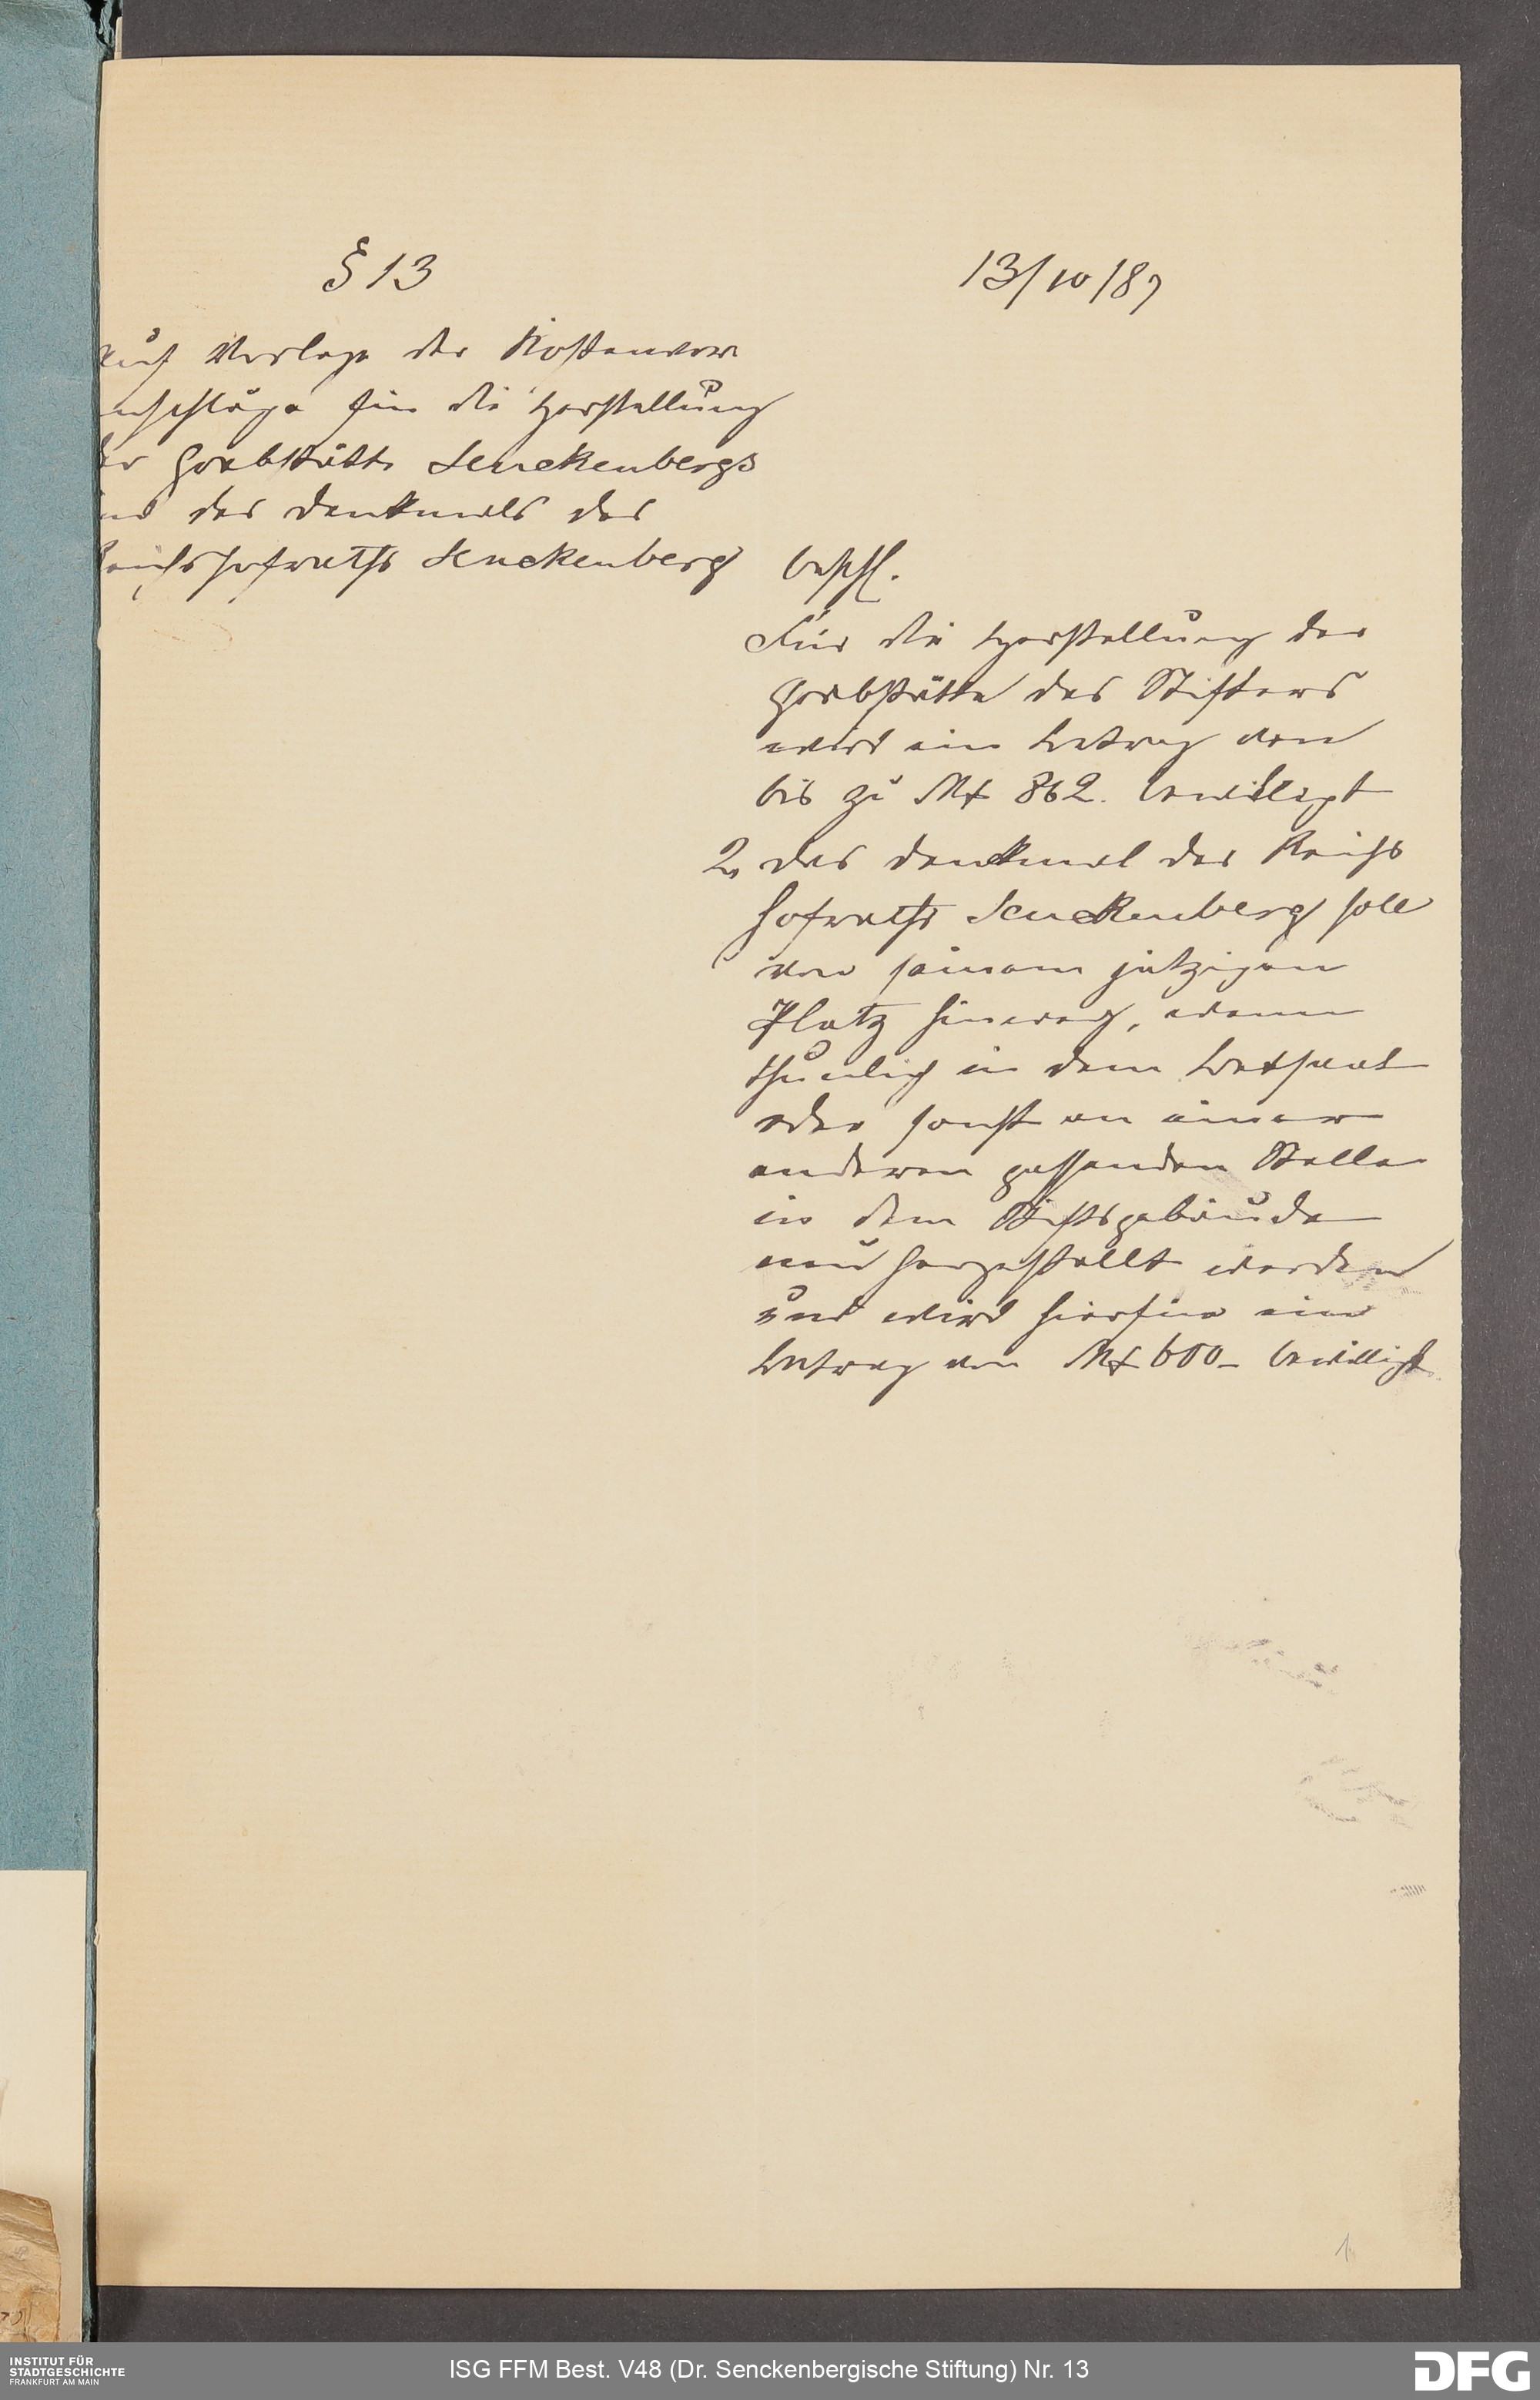 § 13
13/10/87
Auf Vorlage der Kostenvor
anschläge für die Herstellung
der Grabstätte Senckenbergs
und des Denkmals des
Reichshofraths Senckenberg
beschl.
Für die Herstellung der
Grabstätte des Stifters
wird ein Betrag von
bis zu Mk 862. bewilligt
2, das Denkmal des Reichs
hofraths Senckenberg soll
von seinem jetzigen
Platz hinweg, wenn
thunlich in dem Betsaal
oder sonst an einer
anderen passenden Stelle
in dem Stiftsgebäude
neu hergestellt werden
und wird hierfür ein
Betrag von Mk 600– bewilligt
1
INSTITUT FÜR
STADTGESCHICHTE
FRANKFURT AM MAIN
ISG FFM Best. V48 (Dr. Senckenbergische Stiftung) Nr. 13
DFG